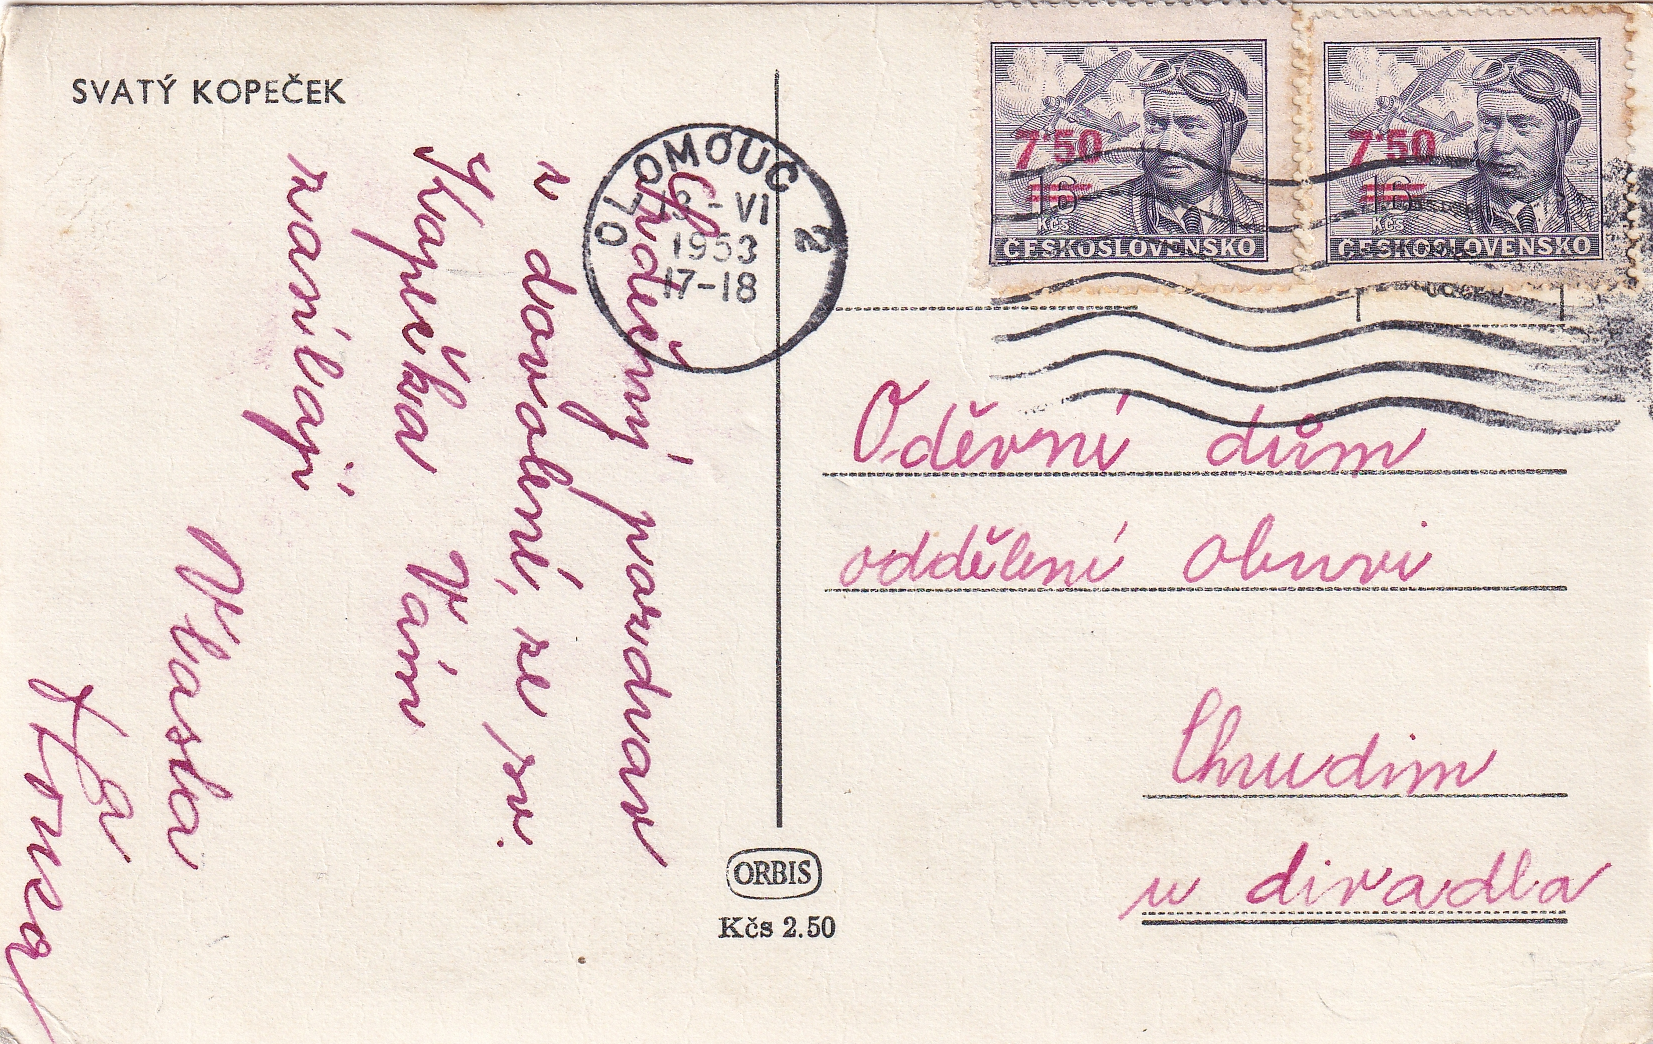 SVATÝ KOPEČEK
Srdečný pozdrav
z dovolené, ze sv.
Kopečka Vám
zasílají
Vlasta
a
Honza
OLOMOUC 2
- VI
1953
17-18
7·50
15
Kčs
ČESKOSLOVENSKO
7·50
15
Kčs
ČESKOSLOVENSKO
Oděvní dům
oddělení obuvi
Chrudim
u divadla
ORBIS
Kčs 2.50